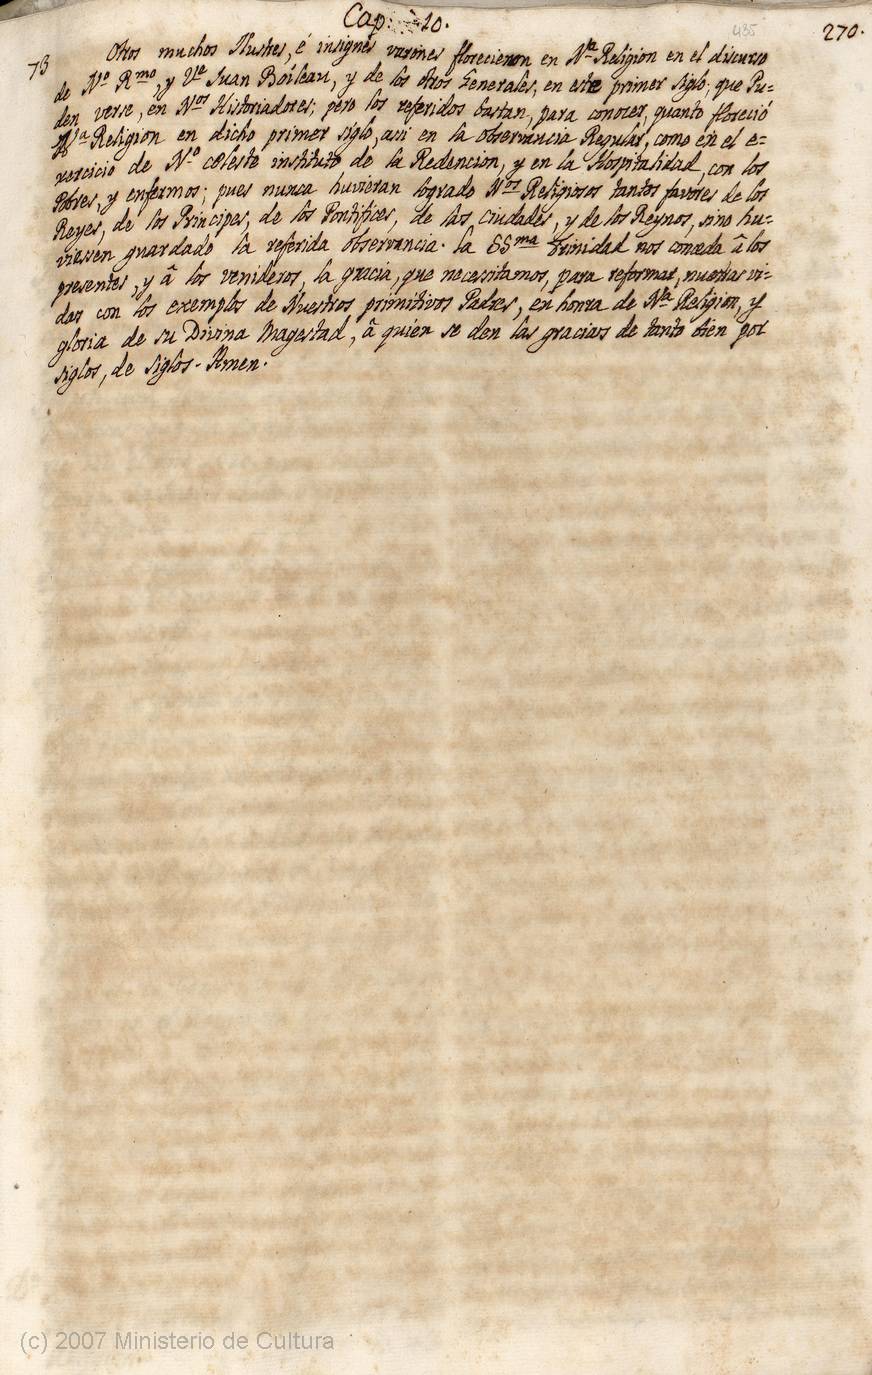 Cap. 10.
435
270.
73
Otros muchos Ilustres, é insignes varones florecieron en Nra Religion en el discurso
de No Rmo, y Ve Juan Boileau, y de los otros Generales, en este primer siglo; que Pu=
den verse, en Nros Historiadores; pero los referidos bastan, para conocer, quanto floreció
Na Religion en dicho primer siglo, asi en la observancia Regular, como en el e=
xercicio de No cœleste instituto de la Redencion, y en la Hospitalidad, con los
Pobres, y enfermos; pues nunca huvieran logrado Nros Religiosos tantos favores de los
Reyes, de los Principes, de los Pontifices, de las ciudades, y de los Reynos, sino hu=
viessen guardado la referida observancia. la SSma Trinidad nos conceda â los
presentes, y â los venideros, la gracia, que necessitamos, para reformar, nuestras vi=
das con los exemplos de Nuestros primitivos Padres, en honra de Nra Religion, y
gloria de su Divina Magestad, â quien se den las gracias de tanto bien por
siglos, de siglos. Amen.
(c) 2007 Ministerio de Cultura